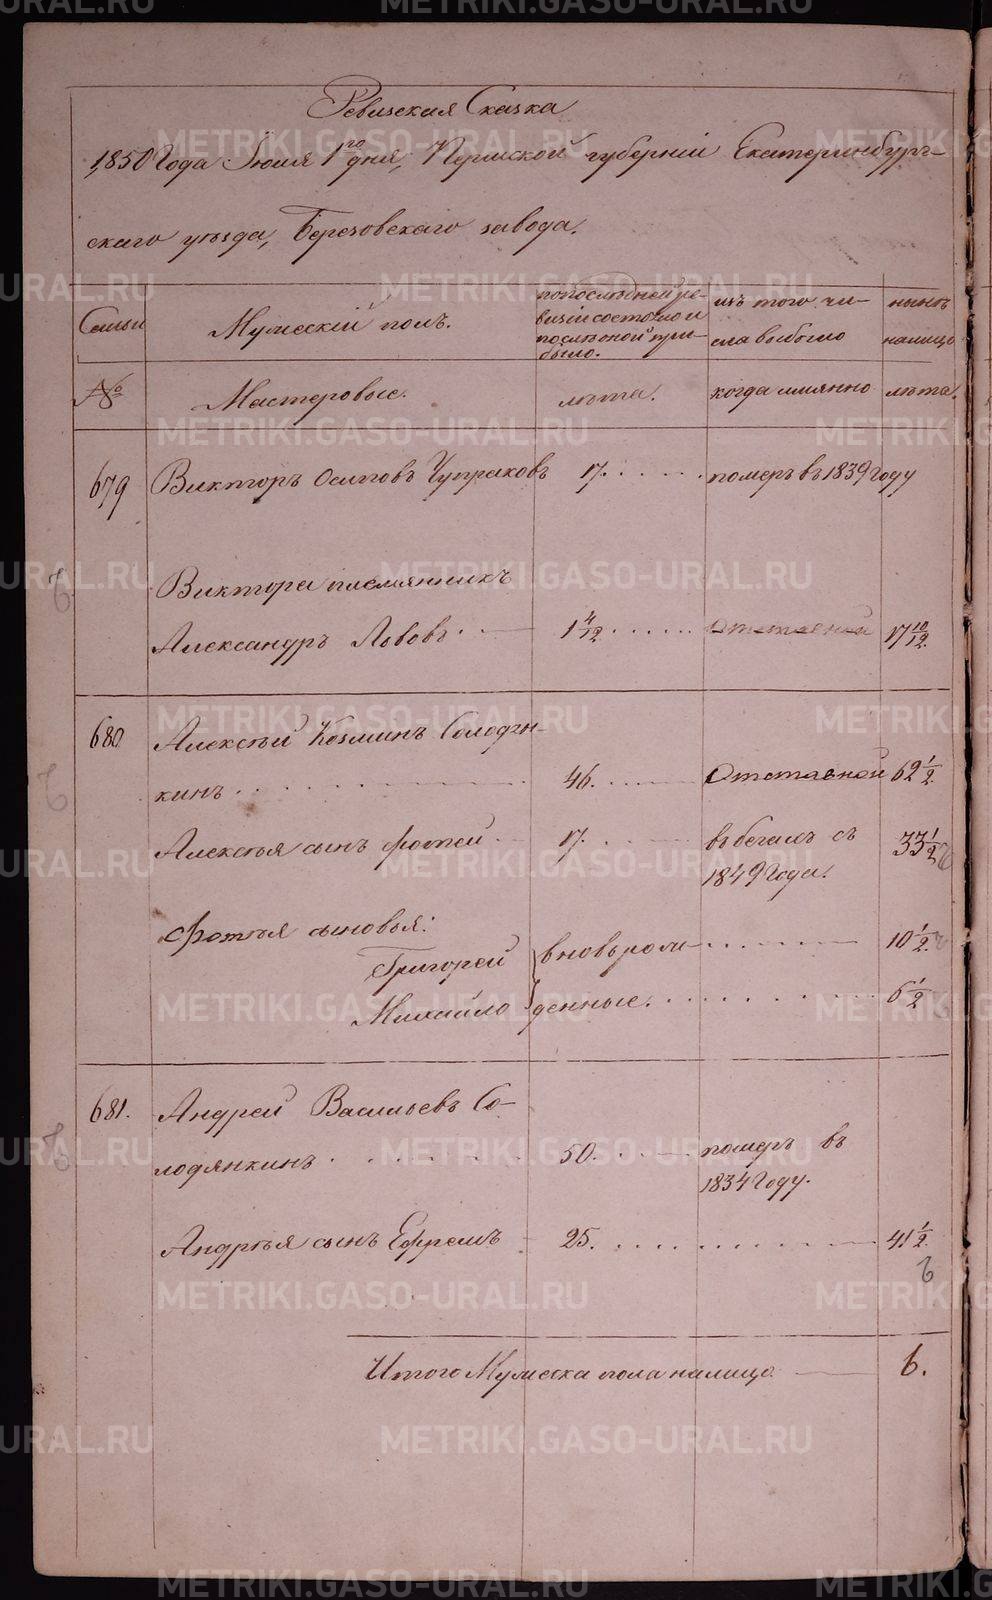 Ревизская Сказка
1850 Года Июля 1го дня, Пермской губернiи Екатеринбург-
скаго уѣзда, Березовскаго завода.
Семьи
Мужескiй полъ.
по послѣдней ре-
визiи состояло и
послѣ оной при-
было.
изъ того чи-
сла выбыло
нынѣ
налицо
№
Мастеровые.
лѣта.
когда имянно
лѣта.
679
Викторъ Осиповъ Чупраковъ
17.
померъ въ 1839 Году
Виктора племянникъ
Александръ Львовъ
1 4/12
Отставной
17 10/12.
680
Алексѣй Козминъ Солодян-
кинъ
46.
Отставной
62 1/2.
Алексѣя сынъ Фотей
17.
въ бегахъ съ
1849 Года.
33 1/2
Фотѣя сыновья:
Григорей
вновь рож-
10 1/2.
Михайло
денные.
6 1/2
681.
Андрей Васильевъ Со-
лодянкинъ
50.
померъ въ
1834 Году.
Андрѣя сынъ Ефремъ
25.
41 1/2
Итого Мужеска пола налицо
6.
METRIKI.GASO-URAL.RU